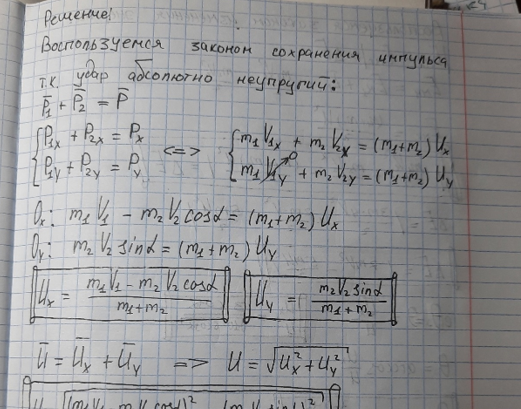 Решение:
Воспользуемся законом сохранения импульса
т.к. удар абсолютно неупругий:
P̄₁ + P̄₂ = P̄
{P₁ₓ + P₂ₓ = Pₓ <=> {m₁V₁ₓ + m₂V₂ₓ = (m₁+m₂)Uₓ
P₁ᵧ + P₂ᵧ = Pᵧ m₁V₁ᵧ↗0 + m₂V₂ᵧ = (m₁+m₂)Uᵧ
Oₓ: m₁V₁ - m₂V₂cosα = (m₁+m₂)Uₓ
Oᵧ: m₂V₂sinα = (m₁+m₂)Uᵧ
Uₓ = (m₁V₁ - m₂V₂cosα)/(m₁+m₂) Uᵧ = (m₂V₂sinα)/(m₁+m₂)
Ū = Ūₓ + Ūᵧ => U = √(Uₓ² + Uᵧ²)